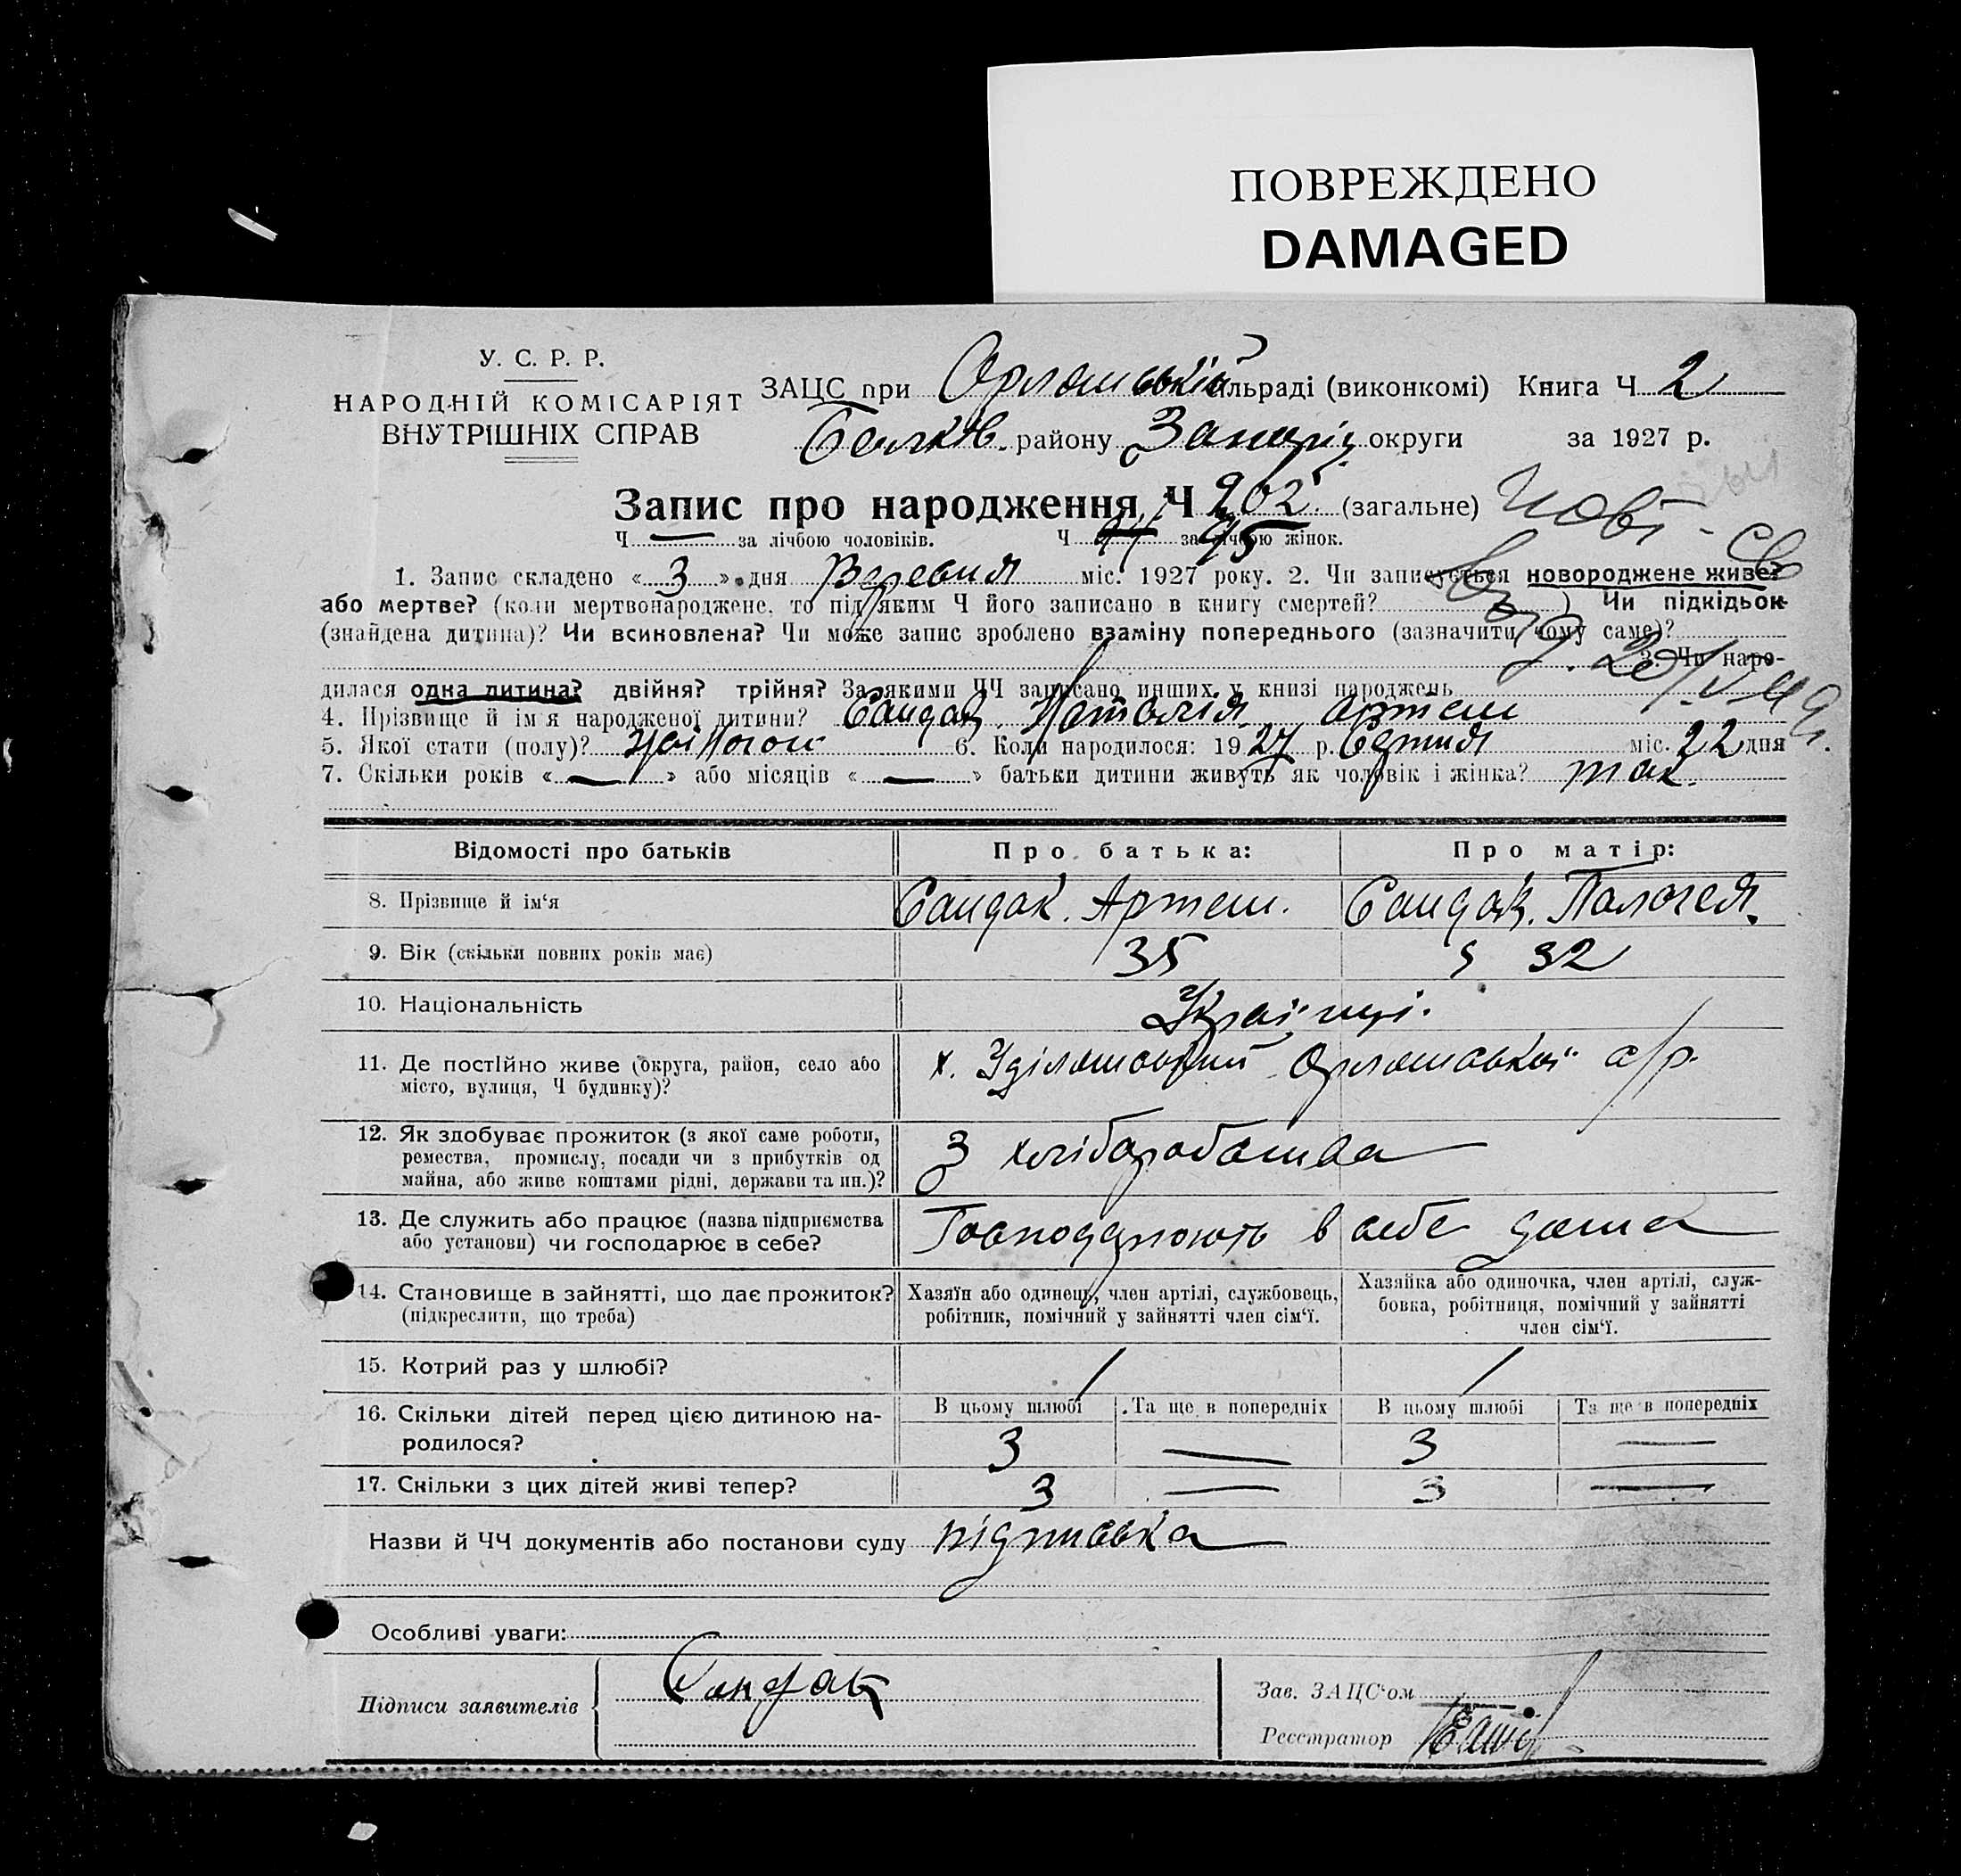 ПОВРЕЖДЕНО
DAMAGED
У. С. Р. Р.
НАРОДНІЙ КОМІСАРІЯТ
ВНУТРІШНІХ СПРАВ
ЗАЦС при Орлянській сільраді (виконкомі) Книга Ч 2
району Запоріз округи за 1927 р.
Запис про народження Ч 202 (загальне)
Ч — за лічбою чоловіків. Ч 95 за лічбою жінок.
1. Запис складено « 3 » дня Вересня міс. 1927 року. 2. Чи записується новороджене живе?
або мертве? (коли мертвонароджене, то під яким Ч його записано в книгу смертей? ) Чи підкідьок
(знайдена дитина)? Чи всиновлена? Чи може запис зроблено взаміну попереднього (зазначити чому саме)?
3. Чи наро-
дилася одна дитина? двійня? трійня? За якими ЧЧ записано инших у книзі народжень
4. Прізвище й ім'я народженої дитини? Сандак Наталія Артем
5. Якої статі (полу)? жіночої 6. Коли народилося: 1927 р. Серпня міс. 22 дня
7. Скільки років « — » або місяців « — » батьки дитини живуть як чоловік і жінка? так.
Нові - св
20/V-49р.
Відомості про батьків Про батька: Про матір:
8. Прізвище й ім'я Сандак. Артем. Сандак. Палагея.
9. Вік (скільки повних років має) 35 32
10. Національність Українці.
11. Де постійно живе (округа, район, село або х. Орлянської с/р.
місто, вулиця, Ч будинку)?
12. Як здобуває прожиток (з якої саме роботи, З хліборобства
ремества, промислу, посади чи з прибутків од
майна, або живе коштами рідні, держави та ин.)?
13. Де служить або працює (назва підприємства Господарюють в себе дома
або установи) чи господарює в себе?
14. Становище в зайнятті, що дає прожиток? Хазяїн або одинець, член артілі, службовець, Хазяйка або одиночка, член артілі, служ-
(підкреслити, що треба) робітник, помічний у зайнятті член сім'ї. бовка, робітниця, помічний у зайнятті
член сім'ї.
15. Котрий раз у шлюбі? 1 1
16. Скільки дітей перед цією дитиною на- В цьому шлюбі Та ще в попередніх В цьому шлюбі Та ще в попередніх
родилося? 3 — 3 —
17. Скільки з цих дітей живі тепер? 3 — 3 —
Назви й ЧЧ документів або постанови суду підписька
Особливі уваги:
Підписи заявителів Сандак
Зав. ЗАЦС'ом
Реєстратор